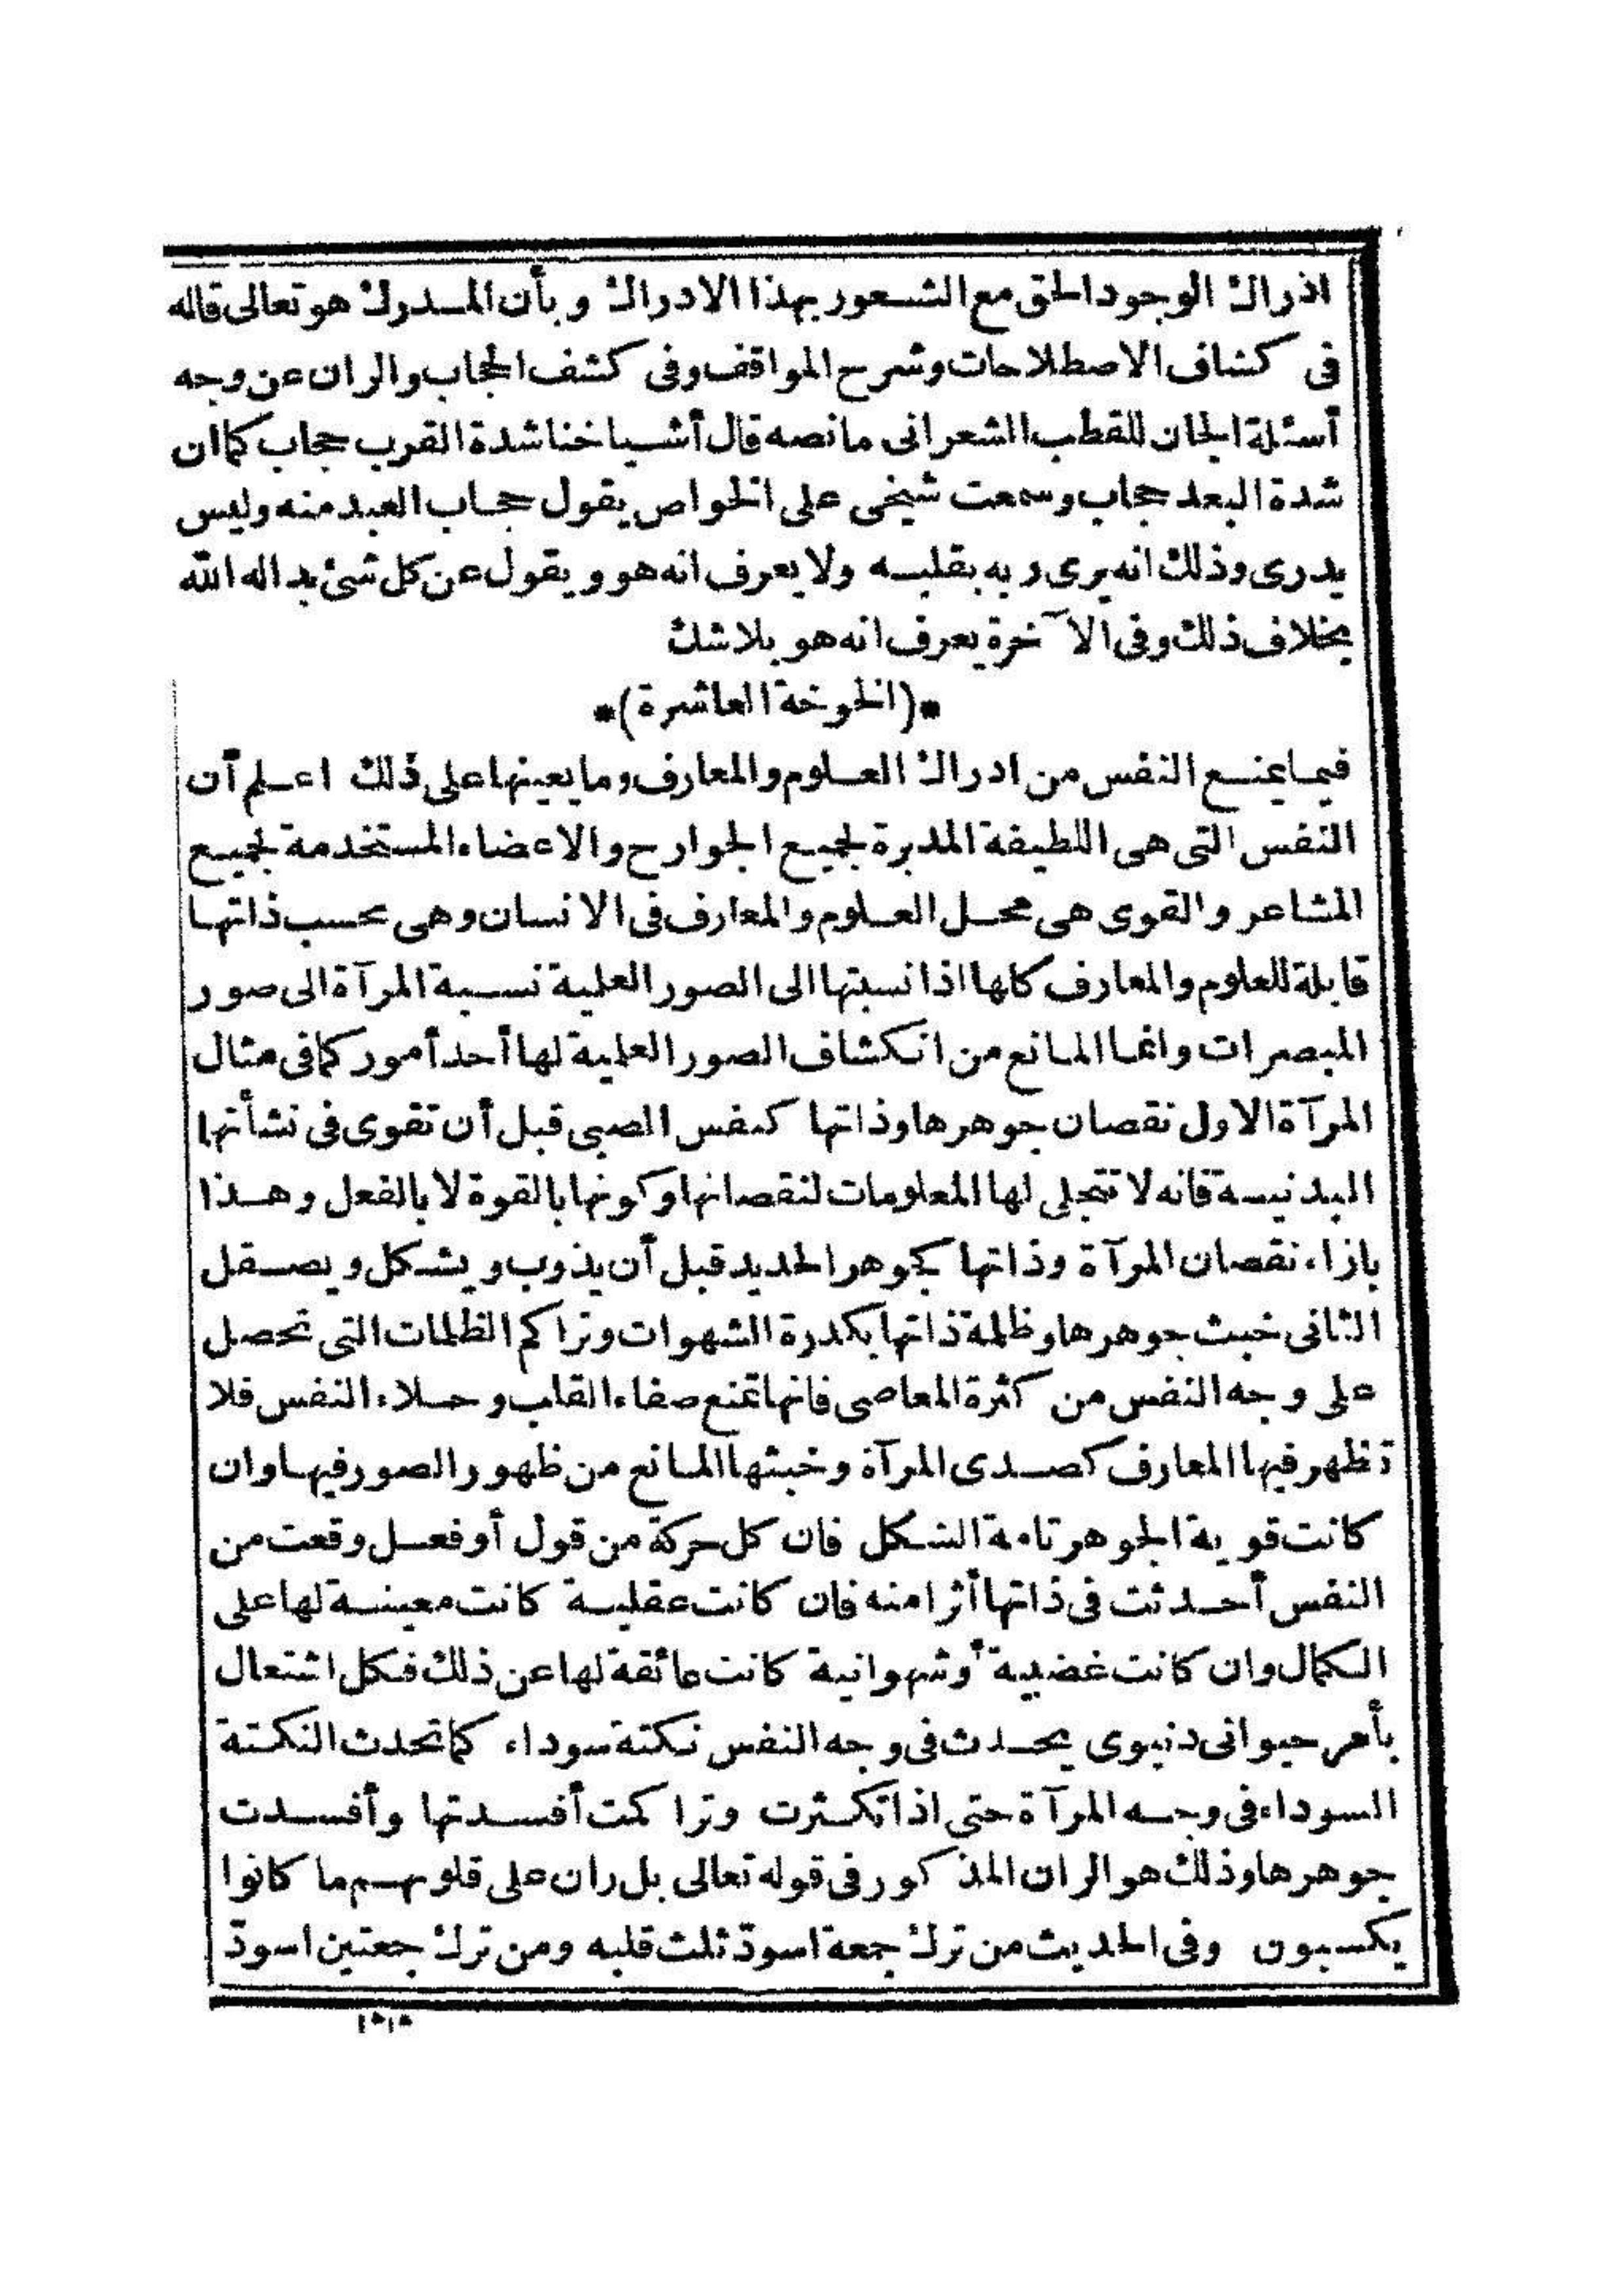 ادراك الوجود الحق مع الشعور بهذا الادراك وبأن المدرك هو تعالى قاله
فى كشاف الاصطلاحات وشرح المواقف وفى كشف الحجاب والران عن وجه
أسئلة الجان للقطب الشعرانى مانصه قال أشياخنا شدة القرب حجاب كما ان
شدة البعد حجاب وسمعت شيخى على الخواص يقول حجاب العبد منه وليس
يدرى وذلك انه يرى ربه بقلبه ولا يعرف انه هو ويقول عن كل شئ بداله الله
بخلاف ذلك وفى الآخرة يعرف انه هو بلاشك
*(الخوخة العاشرة)*
فيما يمنع النفس من ادراك العلوم والمعارف وما يعينها على ذلك اعلم أن
النفس التى هى اللطيفة المدبرة لجميع الجوارح والاعضاء المستخدمة لجميع
المشاعر والقوى هى محل العلوم والمعارف فى الانسان وهى بحسب ذاتها
قابلة للعلوم والمعارف كلها اذا نسبتها الى الصور العلية نسبة المرآة الى صور
المبصرات وانما المانع من انكشاف الصور العلمية لها أحد أمور كما فى مثال
المرآة الاول نقصان جوهرها وذاتها كنفس الصبى قبل أن تقوى فى نشأتها
البدنية فانه لا تتجلى لها المعلومات لنقصانها وكونها بالقوة لا بالفعل وهذا
بازاء نقصان المرآة وذاتها كجوهر الحديد قبل أن يذوب ويشكل ويصقل
الثانى خبث جوهرها وظلمة ذاتها بكدرة الشهوات وتراكم الظلمات التى تحصل
على وجه النفس من كثرة المعاصى فانها تمنع صفاء القلب وجلاء النفس فلا
تظهر فيها المعارف كصدى المرآة وخبثها المانع من ظهور الصور فيها وان
كانت قوية الجوهر تامة الشكل فان كل حركة من قول أو فعل وقعت من
النفس أحدثت فى ذاتها أثرا منه فان كانت عقلية كانت معينة لها على
الكمال وان كانت غضبية أوشهوانية كانت عائقة لها عن ذلك فكل اشتعال
بأمر حيوانى دنيوى يحدث فى وجه النفس نكتة سوداء كما تحدث النكتة
السوداء فى وجه المرآة حتى اذا تكثرت وتراكمت أفسدتها وأفسدت
جوهرها وذلك هو الران المذكور فى قوله تعالى بل ران على قلوبهم ما كانوا
يكسبون وفى الحديث من ترك جمعة اسودّ ثلث قلبه ومن ترك جمعتين اسودّ
ثلثا